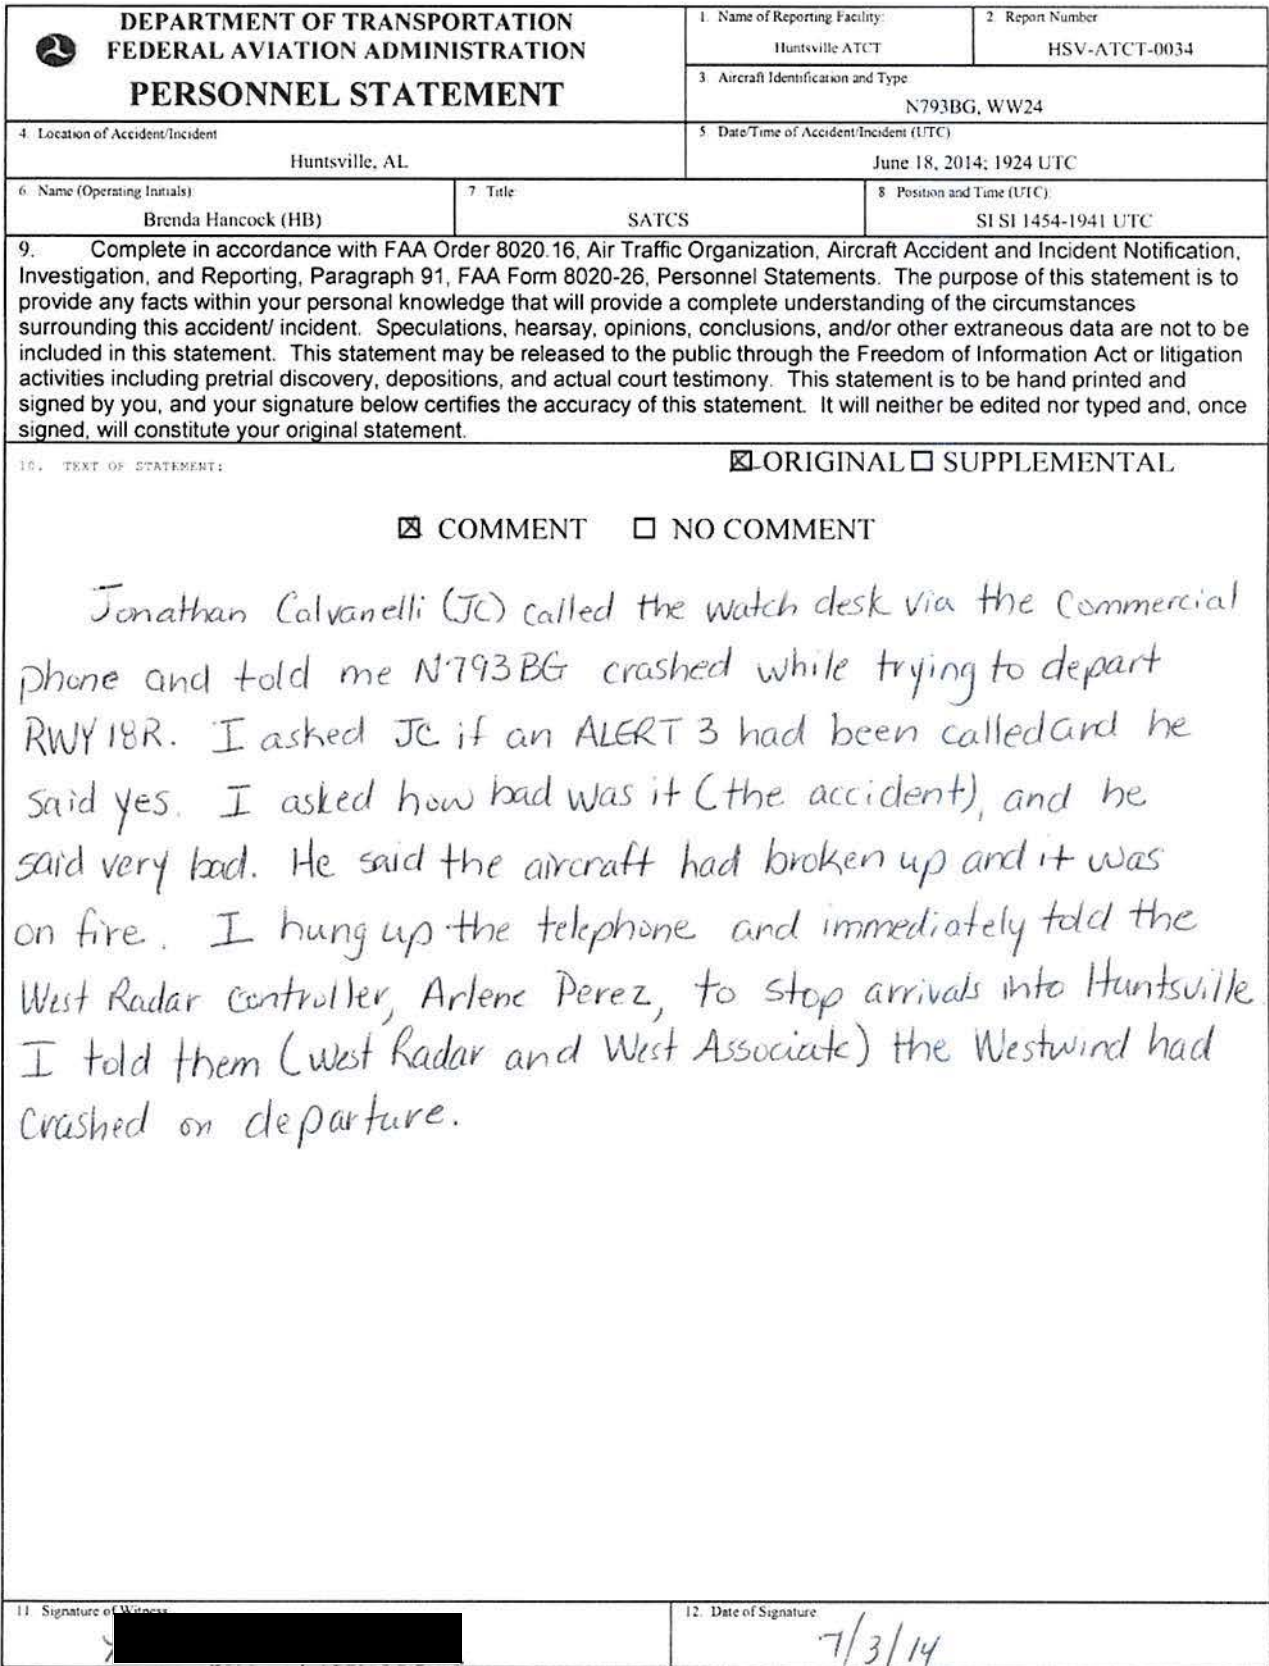 DEPARTMENT OF TRANSPORTATION
FEDERAL AVIATION ADMINISTRATION
PERSONNEL STATEMENT
1. Name of Reporting Facility:
Huntsville ATCT
2. Report Number
HSV-ATCT-0034
3. Aircraft Identification and Type
N793BG, WW24
4. Location of Accident/Incident
Huntsville, AL
5. Date/Time of Accident/Incident (UTC)
June 18, 2014; 1924 UTC
6. Name (Operating Initials)
Brenda Hancock (HB)
7. Title
SATCS
8. Position and Time (UTC):
SI SI 1454-1941 UTC
9. Complete in accordance with FAA Order 8020.16, Air Traffic Organization, Aircraft Accident and Incident Notification,
Investigation, and Reporting, Paragraph 91, FAA Form 8020-26, Personnel Statements. The purpose of this statement is to
provide any facts within your personal knowledge that will provide a complete understanding of the circumstances
surrounding this accident/ incident. Speculations, hearsay, opinions, conclusions, and/or other extraneous data are not to be
included in this statement. This statement may be released to the public through the Freedom of Information Act or litigation
activities including pretrial discovery, depositions, and actual court testimony. This statement is to be hand printed and
signed by you, and your signature below certifies the accuracy of this statement. It will neither be edited nor typed and, once
signed, will constitute your original statement.
10. TEXT OF STATEMENT:
☒ ORIGINAL ☐ SUPPLEMENTAL
☒ COMMENT ☐ NO COMMENT
Jonathan Calvanelli (JC) called the watch desk via the Commercial
phone and told me N793BG crashed while trying to depart
RWY 18R. I asked JC if an ALERT 3 had been called and he
said yes. I asked how bad was it (the accident), and he
said very bad. He said the aircraft had broken up and it was
on fire. I hung up the telephone and immediately told the
West Radar Controller, Arlene Perez, to stop arrivals into Huntsville.
I told them (West Radar and West Associate) the Westwind had
crashed on departure.
11. Signature of Witness
12. Date of Signature
7/3/14